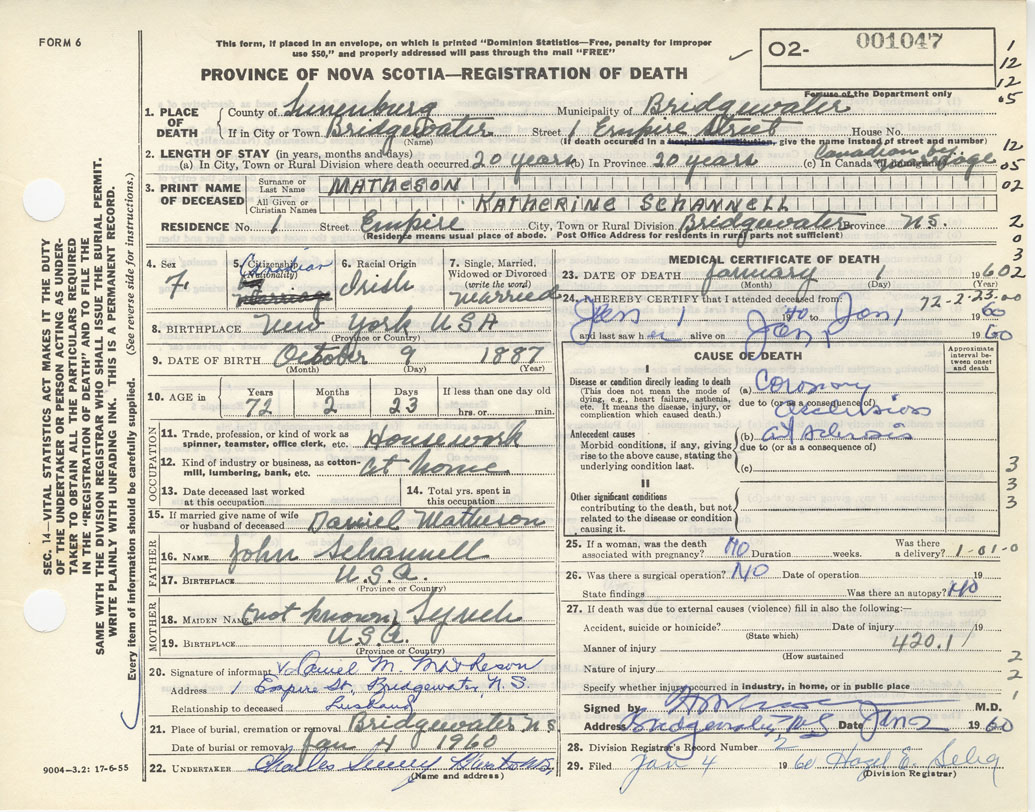 FORM 6
This form, if placed in an envelope, on which is printed "Dominion Statistics—Free, penalty for improper
use $50," and properly addressed will pass through the mail "FREE"
PROVINCE OF NOVA SCOTIA—REGISTRATION OF DEATH
O2- 001047
For use of the Department only
1
12
12
05
1. PLACE OF DEATH
County of Lunenburg Municipality of Bridgewater
If in City or Town Bridgewater Street 1 Empire Street House No.
(Name) (If death occurred in a hospital institution, give the name instead of street and number)
2. LENGTH OF STAY (in years, months and days)
(a) In City, Town or Rural Division where death occurred 20 years (b) In Province 20 years (c) In Canada (if immigrant) Canadian by marriage
12
05
3. PRINT NAME OF DECEASED
Surname or Last Name MATHESON
All Given or Christian Names KATHERINE SCHANNELL
02
RESIDENCE No. 1 Street Empire City, Town or Rural Division Bridgewater Province N.S.
(Residence means usual place of abode. Post Office Address for residents in rural parts not sufficient)
2
0
3
2
4. Sex F.
5. Citizenship (Nationality) Canadian
marriage
6. Racial Origin Irish
7. Single, Married, Widowed or Divorced (write the word) married
8. BIRTHPLACE New York USA
(Province or Country)
9. DATE OF BIRTH October 9 1887
(Month) (Day) (Year)
10. AGE in Years Months Days If less than one day old
72 2 23 hrs. or min.
OCCUPATION
11. Trade, profession, or kind of work as spinner, teamster, office clerk, etc. Housework
12. Kind of industry or business, as cotton-mill, lumbering, bank, etc. at home
13. Date deceased last worked at this occupation
14. Total yrs. spent in this occupation
15. If married give name of wife or husband of deceased Daniel Matheson
FATHER
16. NAME John Schannell
17. BIRTHPLACE U.S.A.
(Province or Country)
MOTHER
18. MAIDEN NAME (not known) Lynch
19. BIRTHPLACE U.S.A.
(Province or Country)
20. Signature of informant x Daniel M. Matheson
Address 1 Empire St., Bridgewater, N.S.
Relationship to deceased husband
21. Place of burial, cremation or removal Bridgewater N S
Date of burial or removal Jan 4 1960
22. UNDERTAKER Charles
(Name and address)
MEDICAL CERTIFICATE OF DEATH
23. DATE OF DEATH January 1 1960
(Month) (Day) (Year)
24. I HEREBY CERTIFY that I attended deceased from: 72-2-23-00
Jan 1 19 60 to Jan 1 1960
and last saw her alive on Jan 1 1960
CAUSE OF DEATH
Approximate interval between onset and death
I
Disease or condition directly leading to death
(This does not mean the mode of dying, e.g., heart failure, asthenia, etc. It means the disease, injury, or complication which caused death.)
(a) Coronary
due to (or as a consequence of)
occlusion
Antecedent causes
Morbid conditions, if any, giving rise to the above cause, stating the underlying condition last.
(b) art sclerosis
due to (or as a consequence of)
(c)
II
Other significant conditions contributing to the death, but not related to the disease or condition causing it.
3
3
3
25. If a woman, was the death associated with pregnancy? NO Duration weeks. Was there a delivery? 1-01-0
26. Was there a surgical operation? NO Date of operation 19
State findings Was there an autopsy? NO
27. If death was due to external causes (violence) fill in also the following:—
Accident, suicide or homicide? Date of injury 19
(State which)
Manner of injury 420.1
(How sustained
Nature of injury
Specify whether injury occurred in industry, in home, or in public place
2
2
1
Signed by M.D.
Address Bridgewater, N.S. Date Jan 2 1960
28. Division Registrar's Record Number 2
29. Filed Jan 4 1960 Hazel E. Selig
(Division Registrar)
SEC. 14—VITAL STATISTICS ACT MAKES IT THE DUTY
OF THE UNDERTAKER OR PERSON ACTING AS UNDER-
TAKER TO OBTAIN ALL THE PARTICULARS REQUIRED
IN THE "REGISTRATION OF DEATH" AND TO FILE THE
SAME WITH THE DIVISION REGISTRAR WHO SHALL ISSUE THE BURIAL PERMIT.
WRITE PLAINLY WITH UNFADING INK. THIS IS A PERMANENT RECORD.
Every item of information should be carefully supplied. (See reverse side for instructions.)
9004-3.2: 17-6-55